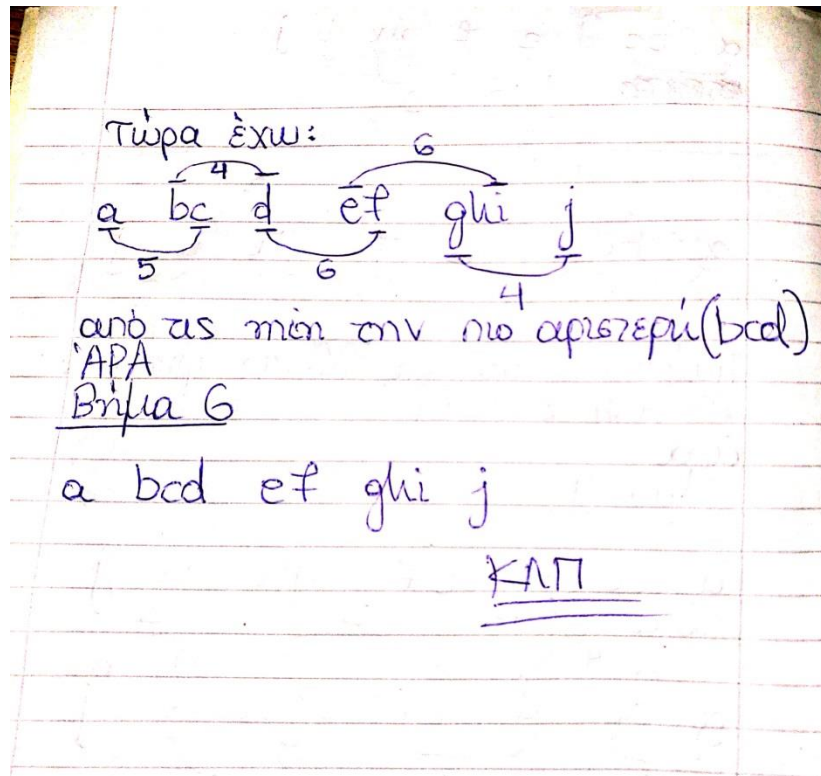 Τώρα έχω:
4 6
a bc d ef ghi j
5 6 4
από τις min την πιο αριστερή (bcd)
ΆΡΑ
Βήμα 6
a bcd ef ghi j
ΚΛΠ